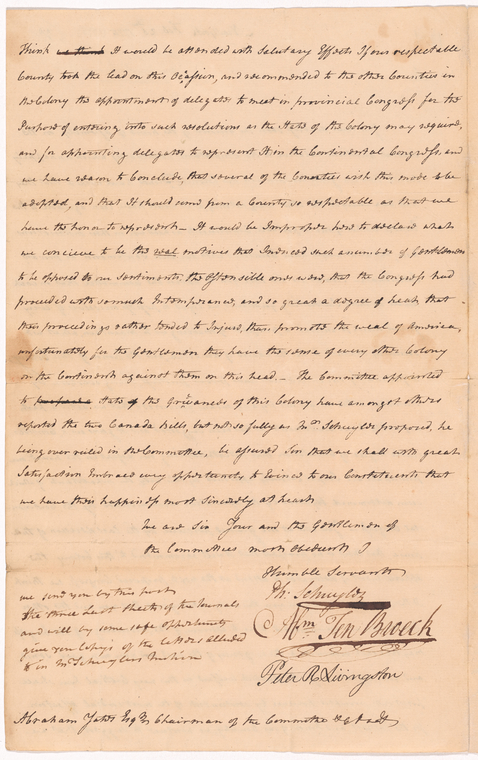 Think we think It would be attended with Salutary Effects If our respectable
County took the lead on this Ocasion, and recommended to the other Counties in
the Colony the appointment of delegates to meet in provincial Congress for the
Purpose of entering into such resolutions as the State of the Colony may require,
and for appointing delegates to represent It in the Continental Congress, and
we have reason to Conclude, that several of the Counties wish this mode to be
adopted, and that It should come from a County so respectable as that we
have the honor to represent – It would be Improper here to declare what
we concieve to be the real motives that Induced such a number of Gentlemen
to be opposed to our Sentiments, the Ostensible ones were, that the Congress had
proceeded with so much Intemperance, and so great a degree of heat that
their proceedings rather tended to Injure, than promote the weal of America,
unfortunately for the Gentlemen they have the sense of every other Colony
on the Continent against them on this head. – The Committee appointed
to prepare a State of the Grievances of this Colony have amongst others
reported the two Canada bills, but not so fully as Mr Schuyler proposed, he
being over ruled in the Committee, be assured Sir that we shall with great
Satisfaction Embrace every oppertunety to Evince to our Constituents that
we have their happiness most Sincerely at heart
We are Sir Your and the Gentlemen of
the Committees most obedient
Humble Servants
Ph: Schuyler
Wm Ten Broeck
Peter R Livingston
we send you by this post
the three last sheets of the Journals
and will by some safe oppertunity
give you Copys of the letters alluded
to in Mr Schuylers Motion
Abraham Yates Esqr Chairman of the Committee &c